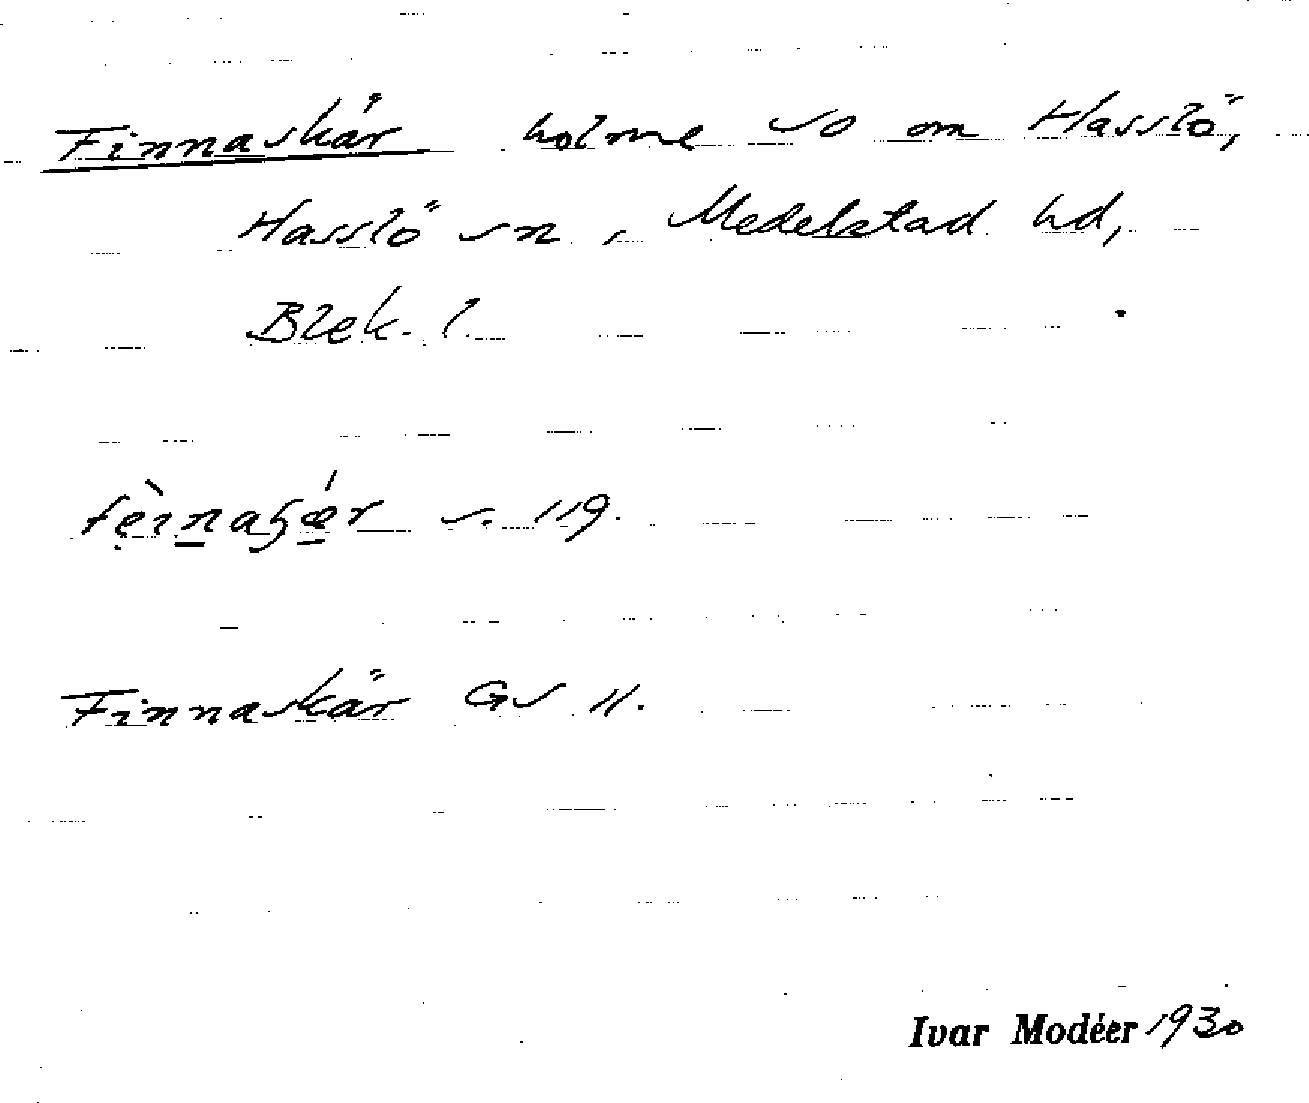 Finnaskär holme so om Hasslö,
Hasslö sn, Medelstad hd,
Blek. l.
s. 119.
Finnaskär GS 11.
Ivar Modéer 1930